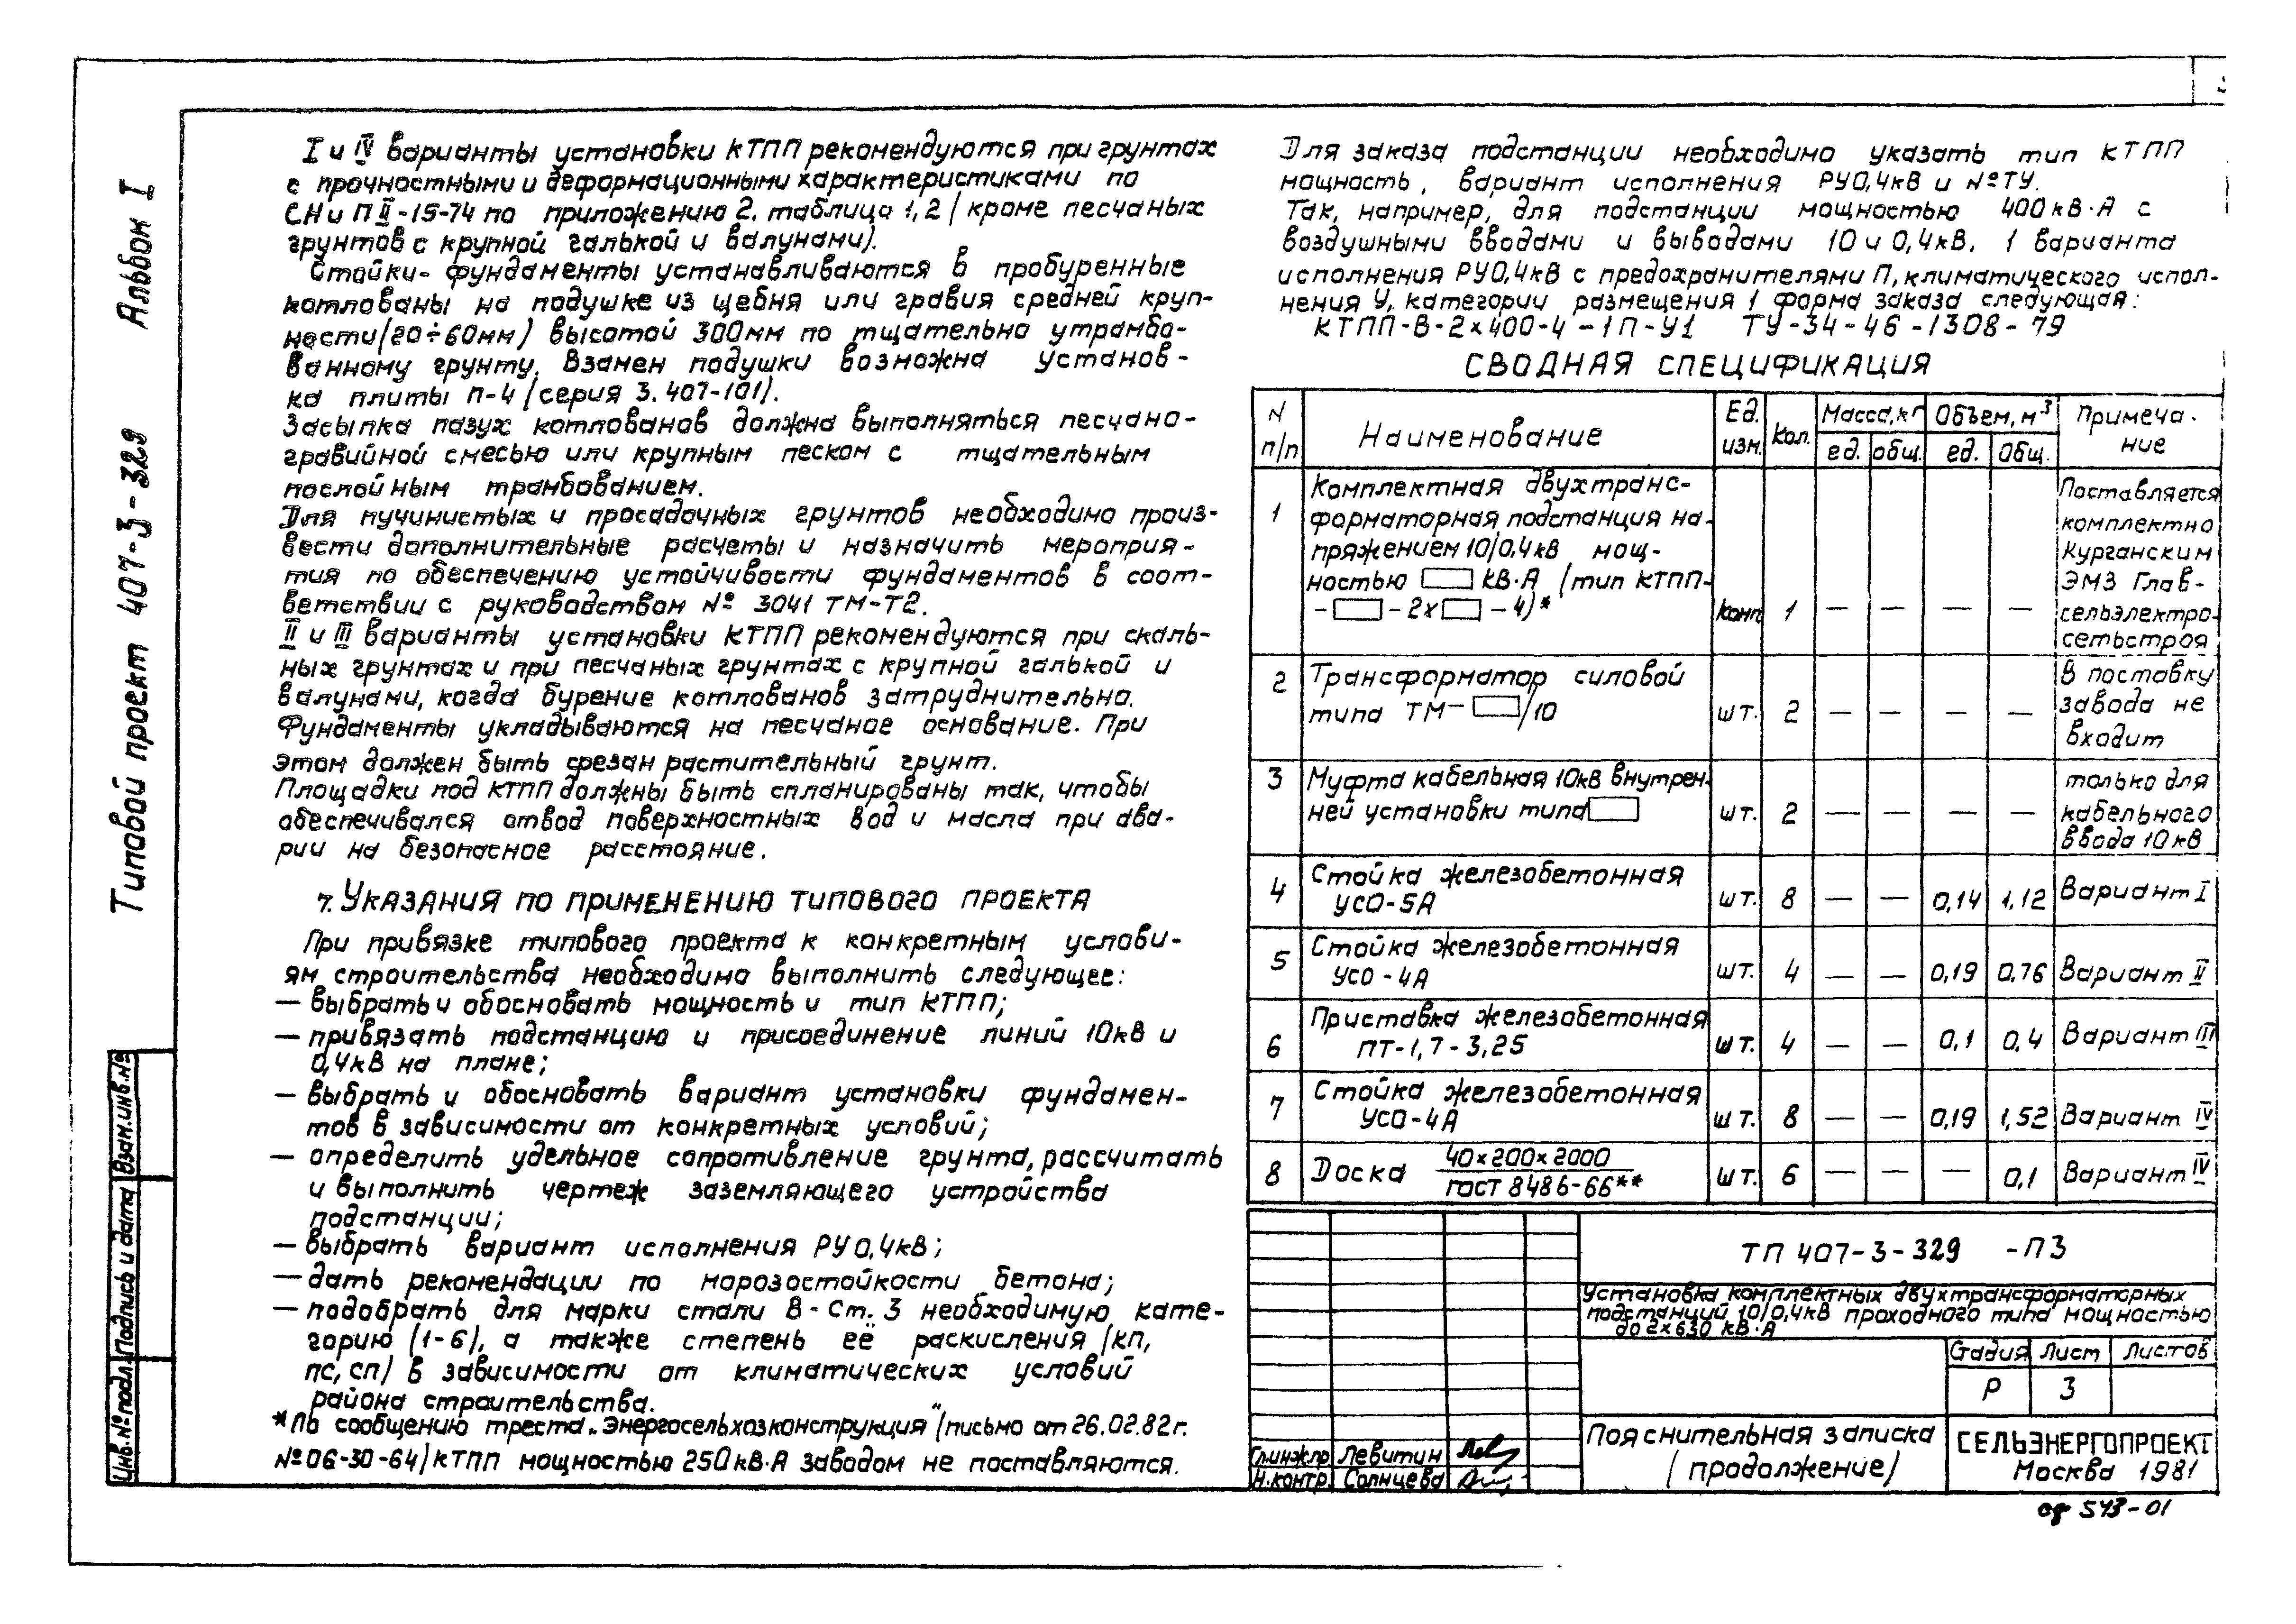 I и IV варианты установки КТПП рекомендуются при грунтах
с прочностными и деформационными характеристиками по
СНиП II-15-74 по приложению 2. таблица 1,2 (кроме песчаных
грунтов с крупной галькой и валунами).
Стойки-фундаменты устанавливаются в пробуренные
котлованы на подушке из щебня или гравия средней круп-
ности (20÷60мм) высотой 300мм по тщательно утрамбо-
ванному грунту. Взамен подушки возможна установ-
ка плиты П-4 (серия 3.407-101).
Засыпка пазух котлованов должна выполняться песчано-
гравийной смесью или крупным песком с тщательным
послойным трамбованием.
Для пучинистых и просадочных грунтов необходимо произ-
вести дополнительные расчеты и назначить мероприя-
тия по обеспечению устойчивости фундаментов в соот-
ветствии с руководством № 3041 ТМ-Т2.
II и III варианты установки КТПП рекомендуются при скаль-
ных грунтах и при песчаных грунтах с крупной галькой и
валунами, когда бурение котлованов затруднительно.
Фундаменты укладываются на песчаное основание. При
этом должен быть срезан растительный грунт.
Площадки под КТПП должны быть спланированы так, чтобы
обеспечивался отвод поверхностных вод и масла при ава-
рии на безопасное расстояние.
7. УКАЗАНИЯ ПО ПРИМЕНЕНИЮ ТИПОВОГО ПРОЕКТА
При привязке типового проекта к конкретным услови-
ям строительства необходимо выполнить следующее:
— выбрать и обосновать мощность и тип КТПП;
— привязать подстанцию и присоединение линий 10кВ и
0,4кВ на плане;
— выбрать и обосновать вариант установки фундамен-
тов в зависимости от конкретных условий;
— определить удельное сопротивление грунта, рассчитать
и выполнить чертеж заземляющего устройства
подстанции;
— выбрать вариант исполнения РУ 0,4кВ;
— дать рекомендации по морозостойкости бетона;
— подобрать для марки стали В-Ст.3 необходимую кате-
горию (1-6), а также степень её раскисления (кп,
пс, сп) в зависимости от климатических условий
района строительства.
*По сообщению треста „Энергосельхозконструкция" (письмо от 26.02.82г.
№06-30-64) КТПП мощностью 250кВ·А заводом не поставляются.
Для заказа подстанции необходимо указать тип КТПП
мощность, вариант исполнения РУ0,4кВ и №ТУ.
Так, например, для подстанции мощностью 400кВ·А с
воздушными вводами и выводами 10 и 0,4кВ, 1 варианта
исполнения РУ0,4кВ с предохранителями П, климатического испол-
нения У, категории размещения 1 форма заказа следующая:
КТПП-В-2х400-4-1П-У1 ТУ-34-46-1308-79
СВОДНАЯ СПЕЦИФИКАЦИЯ
N п/п Наименование Ед. изм. Кол. Масса, кг Объем, м³ Примеча-
ед. общ. ед. общ. ние
1 Комплектная двухтранс-
форматорная подстанция на-
пряжением 10/0,4кВ мощ-
ностью кВ·А (тип КТПП-
- -2х -4)* Комп. 1 — — — — Поставляется
комплектно
Курганским
ЭМЗ Глав-
сельэлектро-
сетьстроя
2 Трансформатор силовой
типа ТМ- /10 шт. 2 — — — — В поставку
завода не
входит
3 Муфта кабельная 10кВ внутрен-
ней установки типа шт. 2 — — — — только для
кабельного
ввода 10кВ
4 Стойка железобетонная
УСО-5А шт. 8 — — 0,14 1,12 Вариант I
5 Стойка железобетонная
УСО-4А шт. 4 — — 0,19 0,76 Вариант II
6 Приставка железобетонная
ПТ-1,7-3,25 шт. 4 — — 0,1 0,4 Вариант III
7 Стойка железобетонная
УСО-4А шт. 8 — — 0,19 1,52 Вариант IV
8 Доска 40х200х2000
ГОСТ 8486-66** шт. 6 — — — 0,1 Вариант IV
ТП 407-3-329 -ПЗ
Установка комплектных двухтрансформаторных
подстанций 10/0,4кВ проходного типа мощностью
до 2х630 кВ·А
Стадия Лист Листов
Р 3
Пояснительная записка
(продолжение)
СЕЛЬЭНЕРГОПРОЕКТ
Москва 1981
Гл.инж.пр Левитин
Н.контр. Солнцева
Типовой проект 407-3-329 Альбом I
Инв.№подл. Подпись и дата Взам.инв.№
сф 543-01